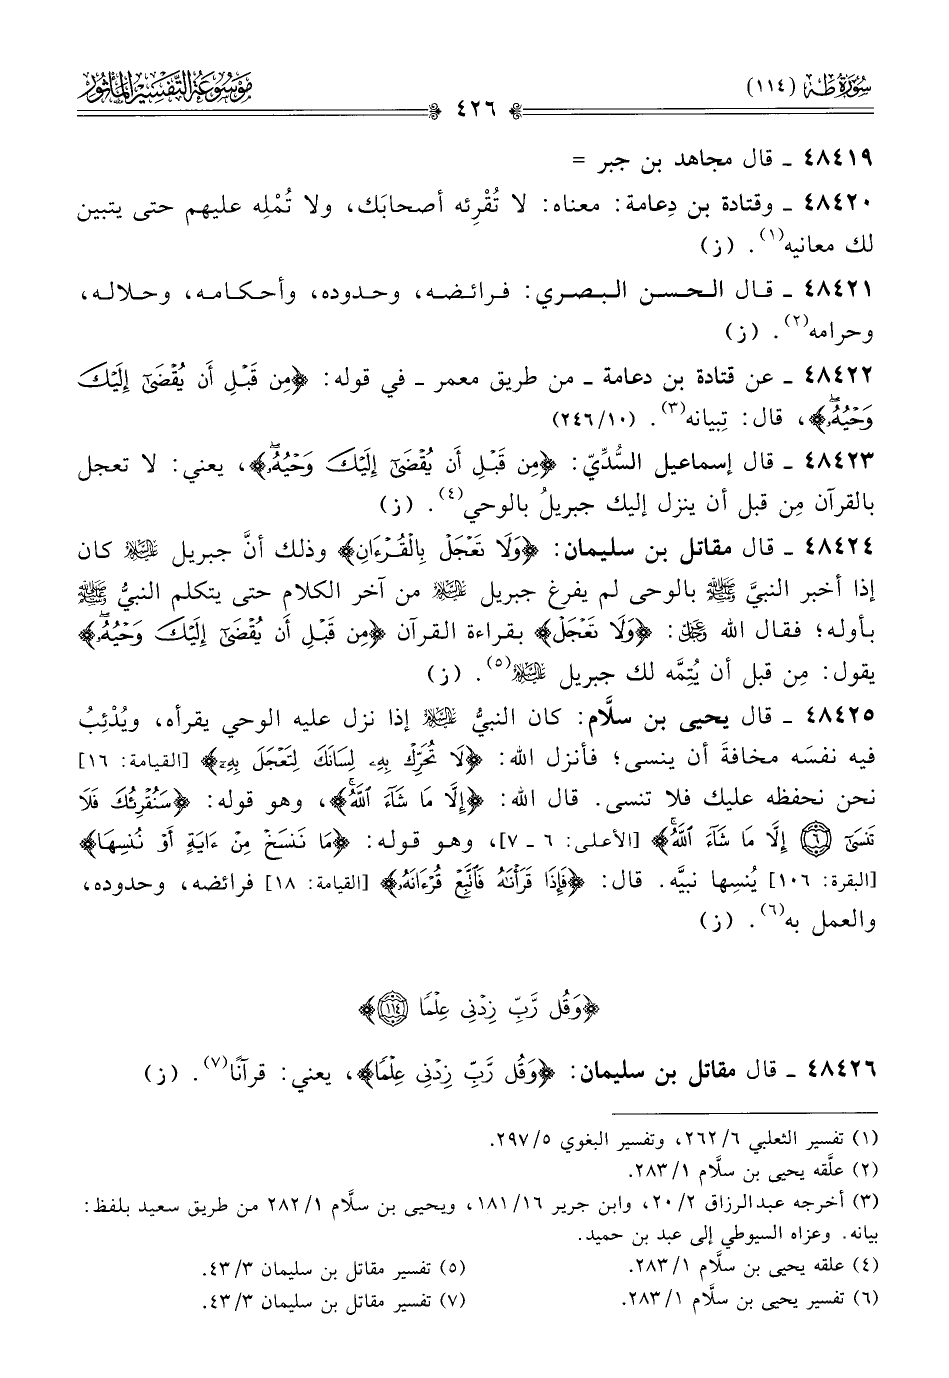 سُورَةُ طه (١١٤)
٤٢٦
مَوْسُوعَة التَّفْسِيْرِ المَأثُور
٤٨٤١٩ ـ قال مجاهد بن جبر =
٤٨٤٢٠ ـ وقتادة بن دِعامة: معناه: لا تُقْرِئه أصحابَك، ولا تُمْلِه عليهم حتى يتبين
لك معانيه(١). (ز)
٤٨٤٢١ ـ قال الحسن البصري: فرائضه، وحدوده، وأحكامه، وحلاله،
وحرامه(٢). (ز)
٤٨٤٢٢ ـ عن قتادة بن دعامة ـ من طريق معمر ـ في قوله: ﴿مِن قَبْلِ أَن يُقْضَىٰٓ إِلَيْكَ
وَحْيُهُۥۖ﴾، قال: تِبيانه(٣). (١٠/٢٤٦)
٤٨٤٢٣ ـ قال إسماعيل السُّدِّيّ: ﴿مِن قَبْلِ أَن يُقْضَىٰٓ إِلَيْكَ وَحْيُهُۥۖ﴾، يعني: لا تعجل
بالقرآن مِن قبل أن ينزل إليك جبريلُ بالوحي(٤). (ز)
٤٨٤٢٤ ـ قال مقاتل بن سليمان: ﴿وَلَا تَعْجَلْ بِالْقُرْءَانِ﴾ وذلك أنَّ جبريل عليه السلام كان
إذا أخبر النبيَّ ﷺ بالوحى لم يفرغ جبريل عليه السلام من آخر الكلام حتى يتكلم النبيُّ ﷺ
بأوله؛ فقال الله عز وجل: ﴿وَلَا تَعْجَلْ﴾ بقراءة القرآن ﴿مِن قَبْلِ أَن يُقْضَىٰٓ إِلَيْكَ وَحْيُهُۥۖ﴾
يقول: مِن قبل أن يُتِمَّه لك جبريل عليه السلام(٥). (ز)
٤٨٤٢٥ ـ قال يحيى بن سلَّام: كان النبيُّ عليه السلام إذا نزل عليه الوحي يقرأه، ويُدْئِبُ
فيه نفسَه مخافةَ أن ينسى؛ فأنزل الله: ﴿لَا تُحَرِّكْ بِهِۦ لِسَانَكَ لِتَعْجَلَ بِهِۦٓ﴾ [القيامة: ١٦]
نحن نحفظه عليك فلا تنسى. قال الله: ﴿إِلَّا مَا شَآءَ ٱللَّهُۚ﴾، وهو قوله: ﴿سَنُقْرِئُكَ فَلَا
تَنسَىٰٓ ٦ إِلَّا مَا شَآءَ ٱللَّهُۚ﴾ [الأعلى: ٦ ـ ٧]، وهو قوله: ﴿مَا نَنسَخْ مِنْ ءَايَةٍ أَوْ نُنسِهَا﴾
[البقرة: ١٠٦] يُنسِها نبيَّه. قال: ﴿فَإِذَا قَرَأْنَهُ فَٱتَّبِعْ قُرْءَانَهُۥ﴾ [القيامة: ١٨] فرائضه، وحدوده،
والعمل به(٦). (ز)
﴿وَقُل رَّبِّ زِدْنِى عِلْمًا ١١٤﴾
٤٨٤٢٦ ـ قال مقاتل بن سليمان: ﴿وَقُل رَّبِّ زِدْنِى عِلْمًا﴾، يعني: قرآنًا(٧). (ز)
(١) تفسير الثعلبي ٦/٢٦٢، وتفسير البغوي ٥/٢٩٧.
(٢) علَّقه يحيى بن سلَّام ١/٢٨٣.
(٣) أخرجه عبدالرزاق ٢/٢٠، وابن جرير ١٦/١٨١، ويحيى بن سلَّام ١/٢٨٢ من طريق سعيد بلفظ:
بيانه. وعزاه السيوطي إلى عبد بن حميد.
(٤) علقه يحيى بن سلَّام ١/٢٨٣.
(٥) تفسير مقاتل بن سليمان ٣/٤٣.
(٦) تفسير يحيى بن سلَّام ١/٢٨٣.
(٧) تفسير مقاتل بن سليمان ٣/٤٣.